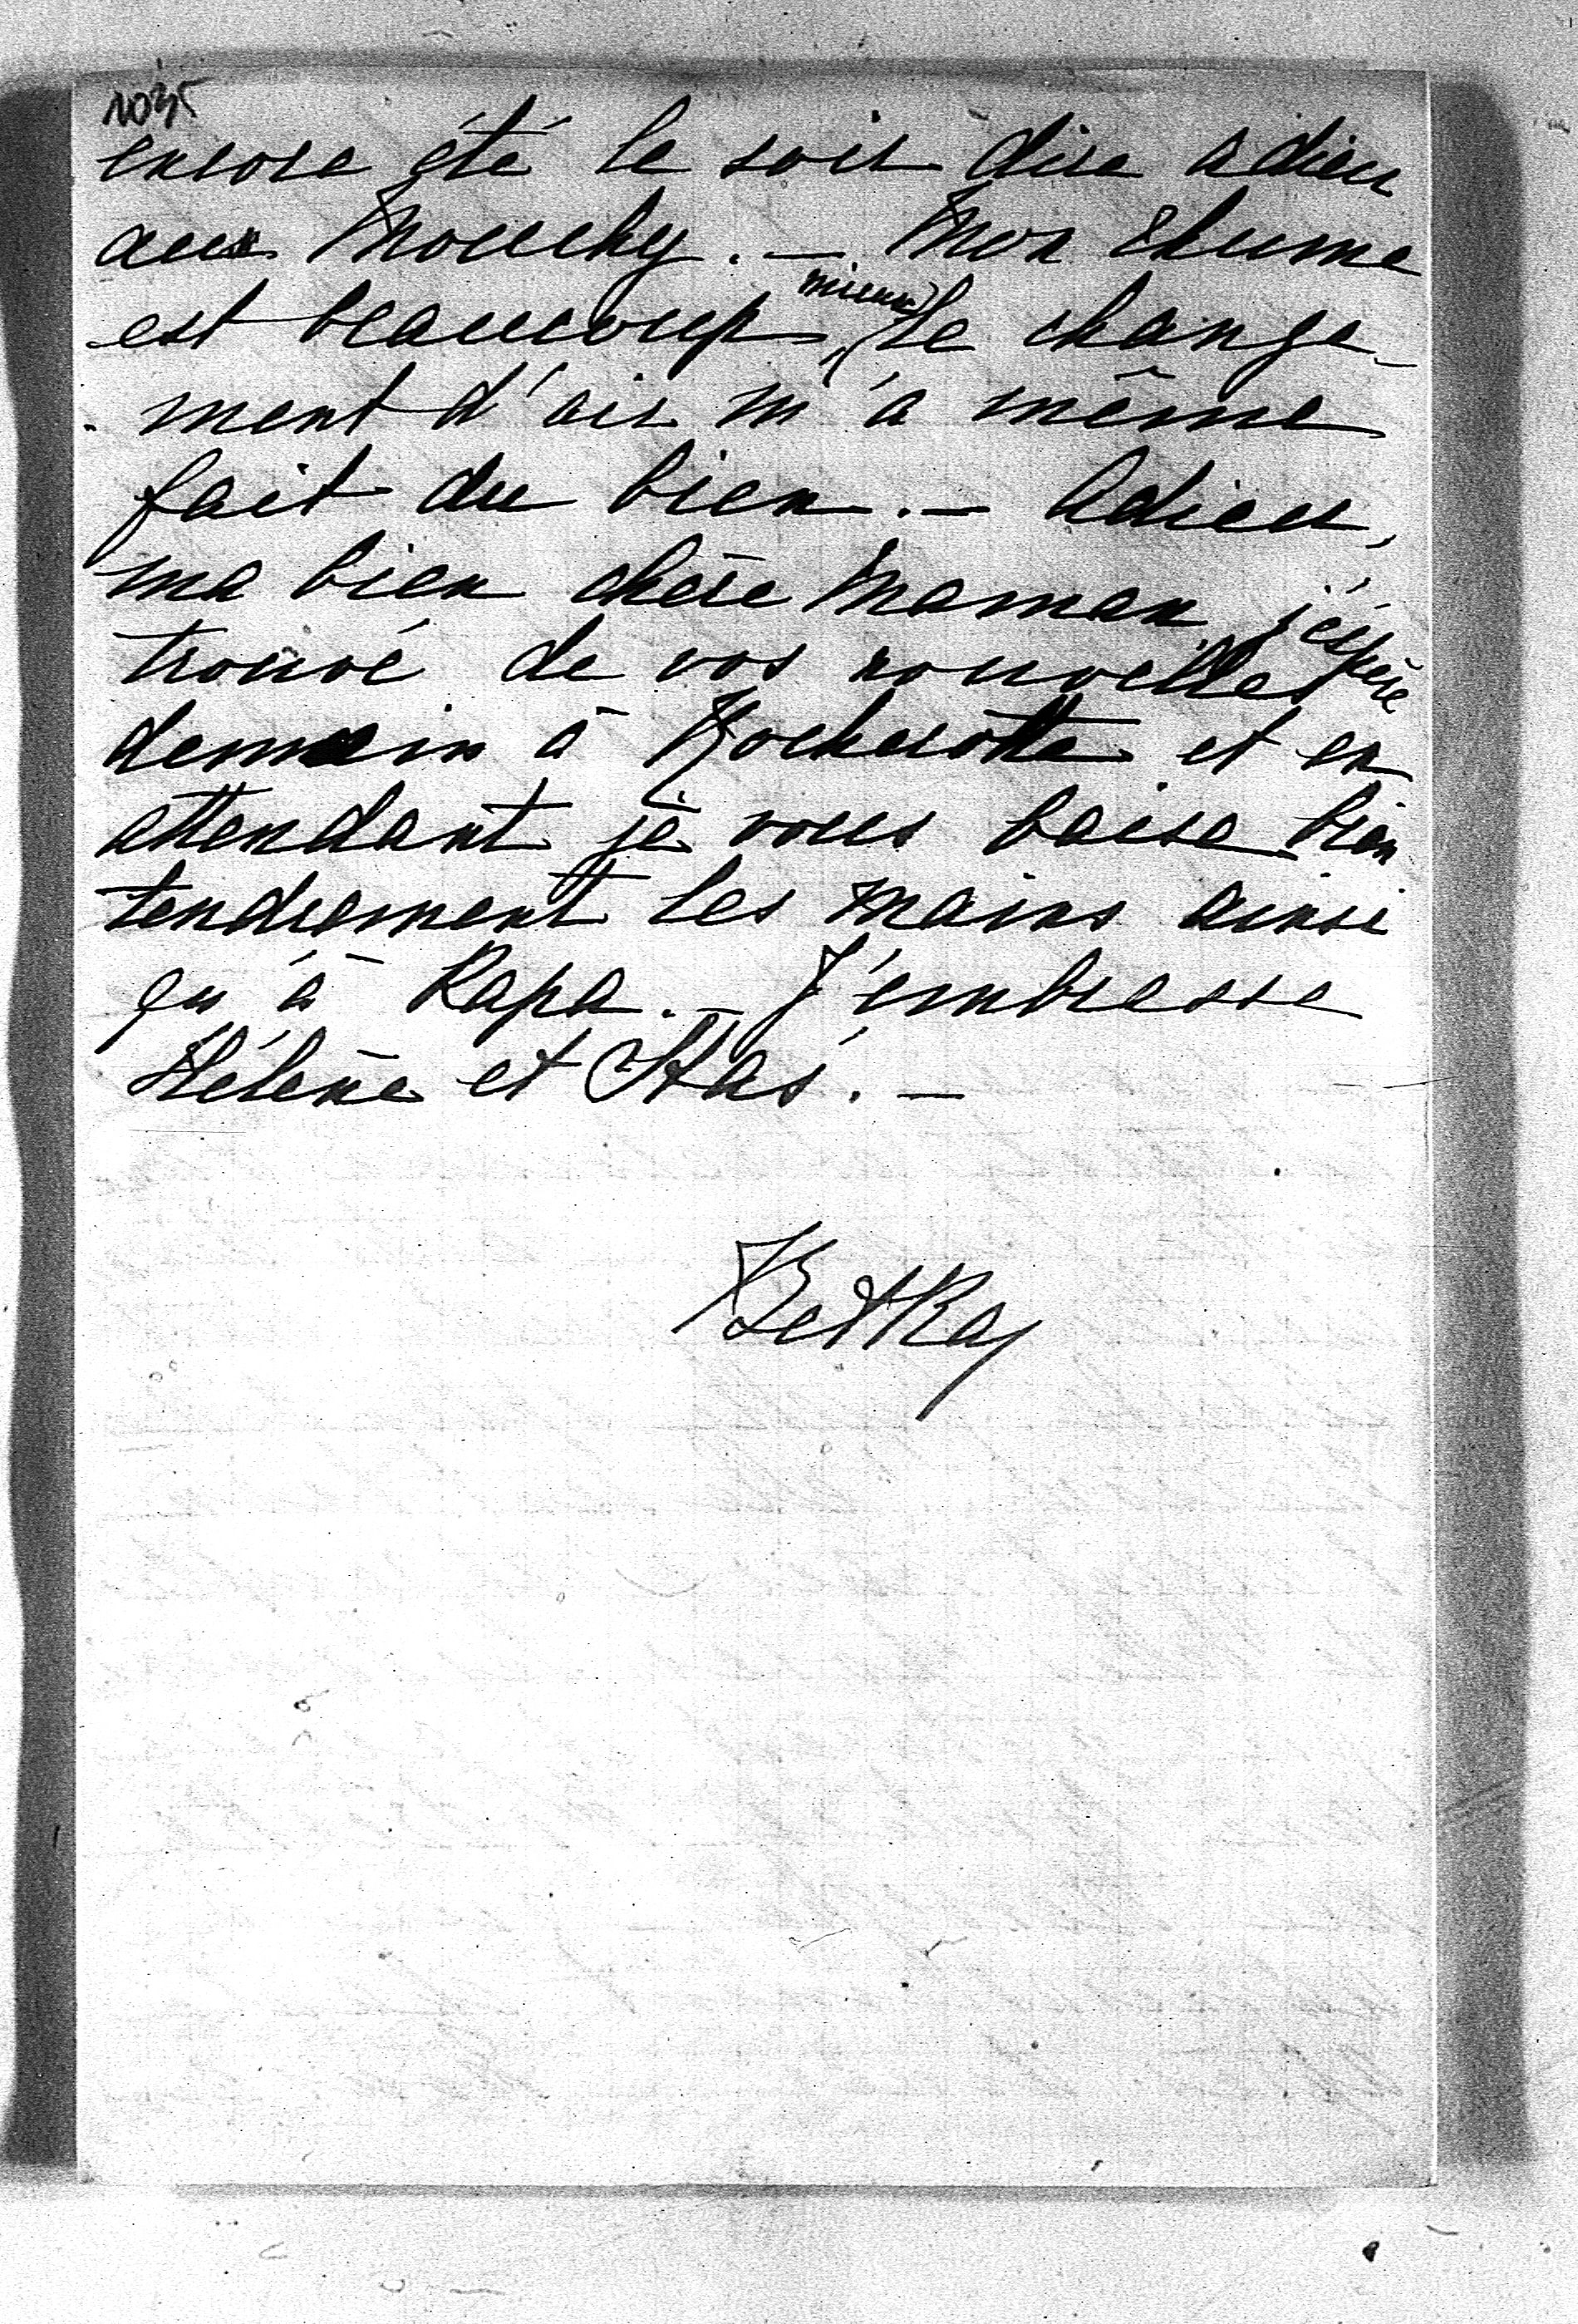 1035
encore été le soir dire adieu
aux Mouchy. — Mon rhume
est beaucoup mieux, le change-
ment d'air m'a même
fait du bien. — Adieu,
ma bien chère Maman, j'éspère
trouvé de vos nouvelles
demain à Rochecotte et en
attendant je vous baise bien
tendrement les mains ainsi
qu'à Papa. — J'embrasse
Hélène et Stas. —
Betka